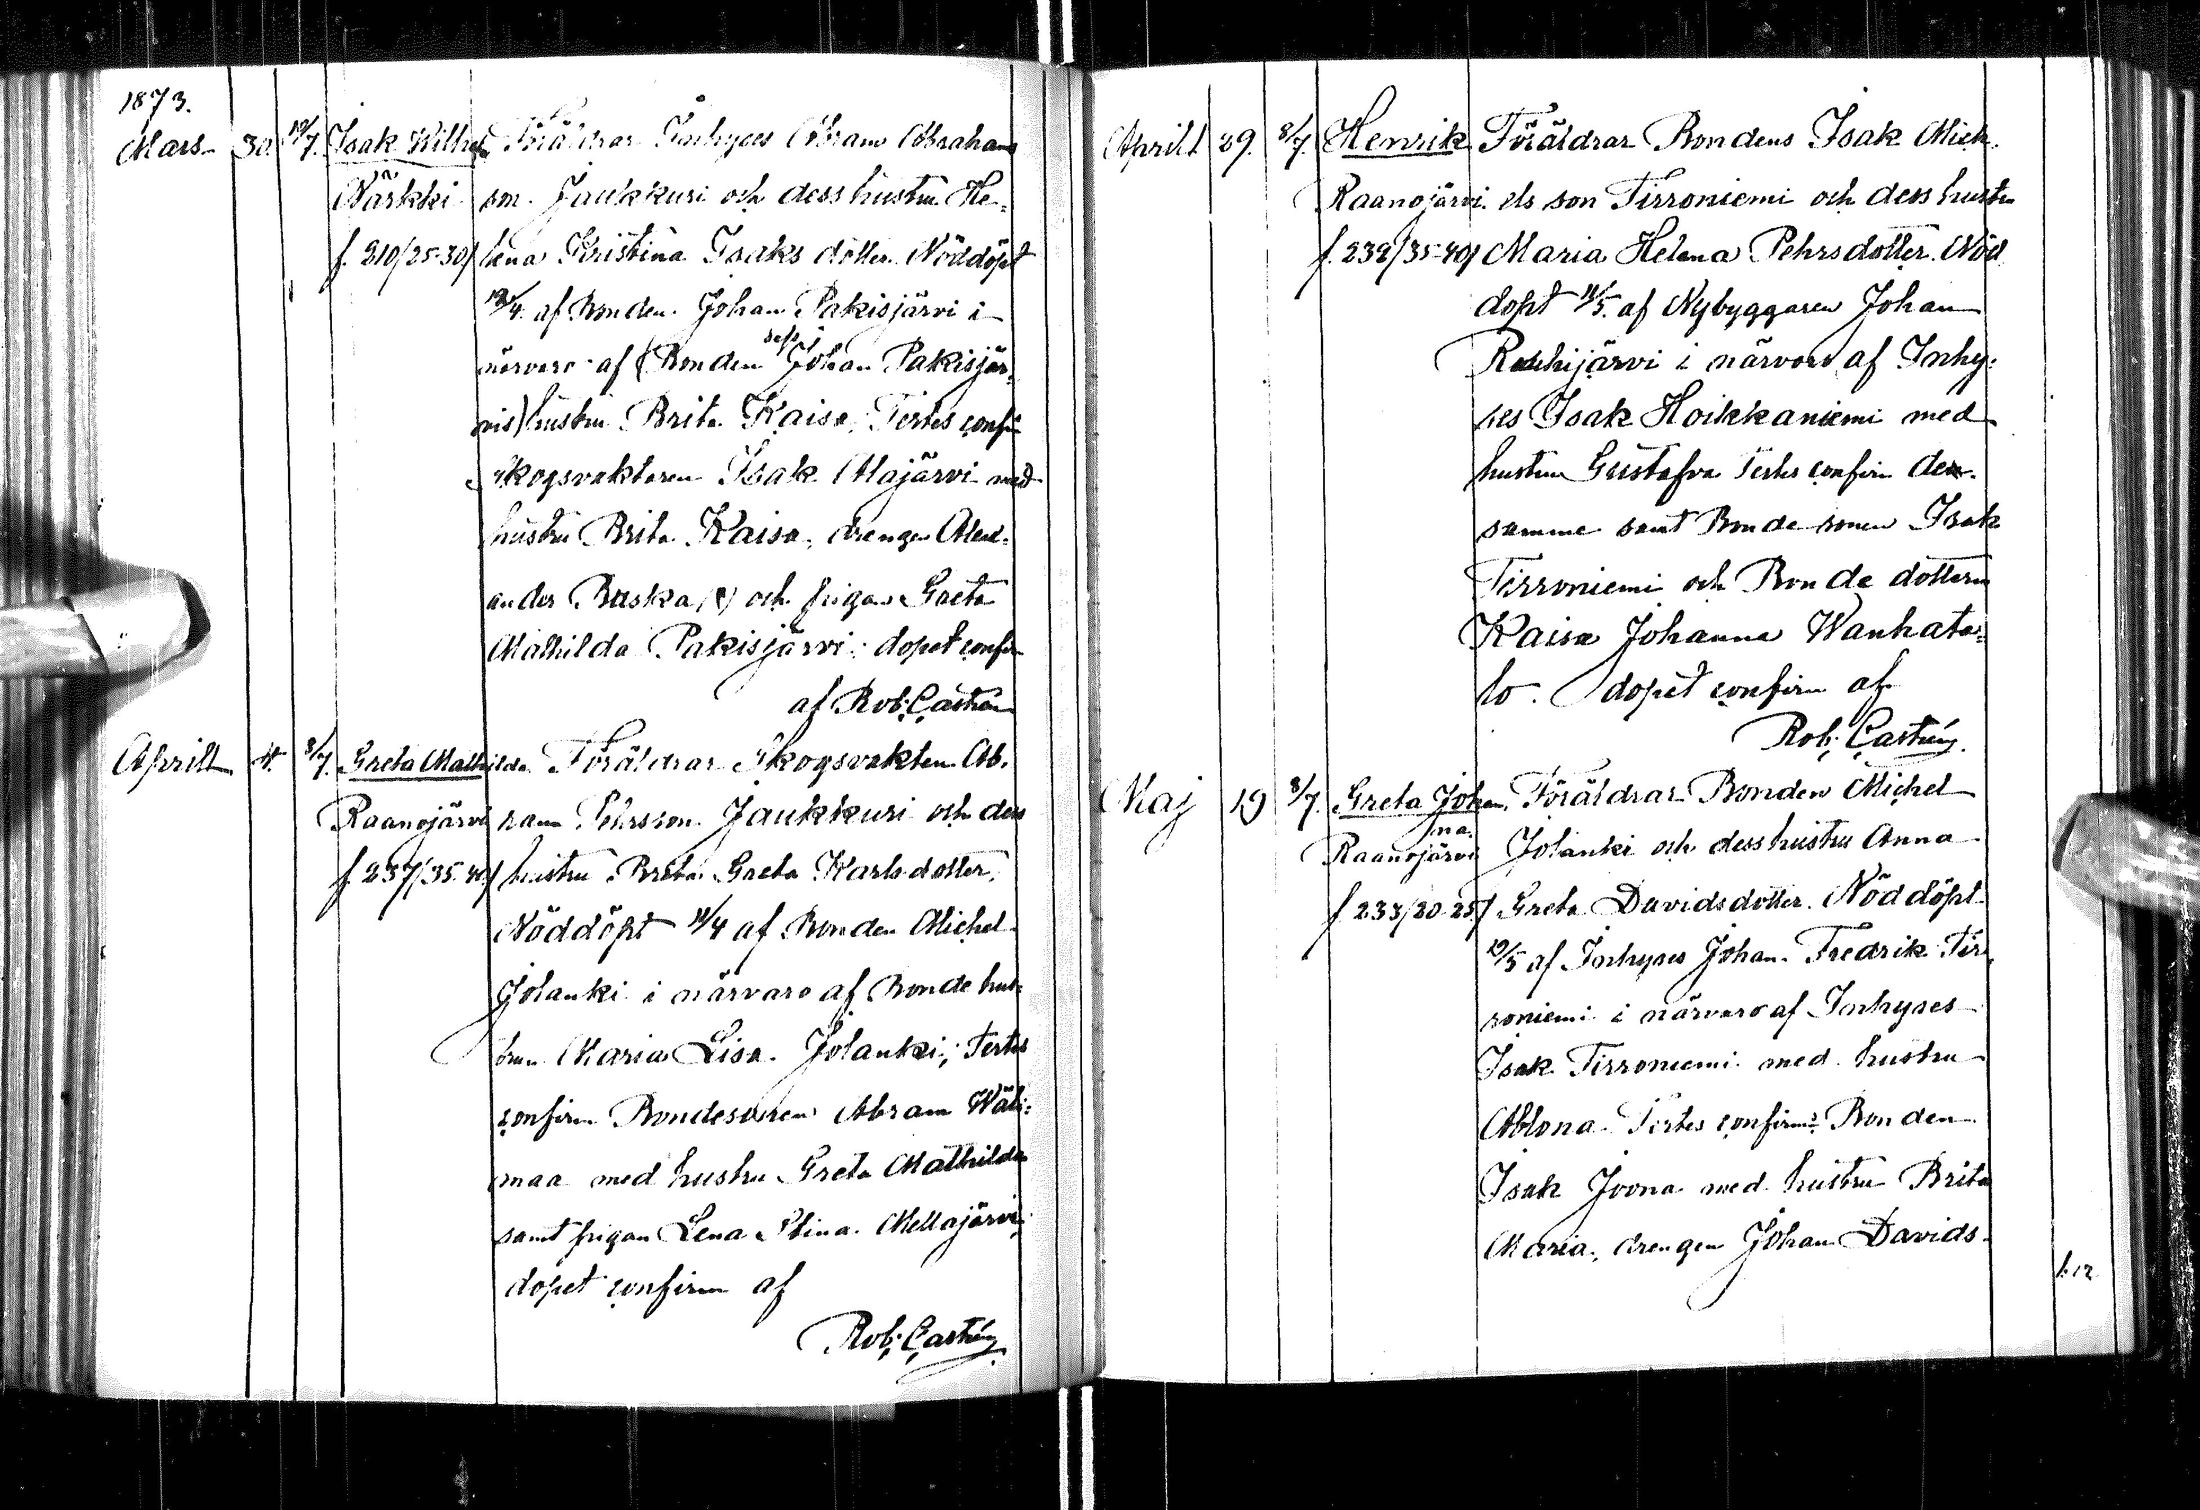 1873.
Mars 30. 19/7. Isak Wilhelm Föräldrar Inhyses Abram Abrahams
Närkki son Jaukkuri och dess hustru He-
f. 210/25-30/ lena Kristina Isaks dotter. Nöddöpt
/4. af Bonden Johan Pakisjärvi i
närvaro af (Bonden Johan Pakisjär-
vis) hustru Brita Kaisa, Testes confir
skogsvaktaren Isak Alajärvi med
hustru Brita Kaisa, drengen Alex-
ander Ruska (?) och pigan Greta
Mathilda Pakisjärvi; dopet confir
af Rob: Castrén
Aprill 4. 8/7. Greta Mathilda Föräldrar Skogsvakten Ab-
Raanojärvi ram Pehrsson Jaukkuri och dess
f. 237/35-40/ hustru Brita Greta Karlsdotter.
Nöddöpt 11/4 af Bonden Michel
Jolanki i närvaro af Bonde hus-
trun Maria Lisa Jolanki; Testes
confirm Bondesonen Abram Wäli-
maa med hustru Greta Mathilda
samt pigan Lena Stina Mellajärvi;
dopet confirm af
Rob: Castrén
Aprill 29. 8/7. Henrik Föräldrar Bondens Isak Mich-
Raanojärvi els son Tirroniemi och dess hustru
f. 232/35-40/ Maria Helena Pehrsdotter. Nöd
döpt 11/5. af Nybyggaren Johan
i närvaro af Inhy-
ses Isak Hoikkaniemi med
hustru Gustafva Testes confirm den-
samme samt Bonde sonen Isak
Tirroniemi och Bonde dottern
Kaisa Johanna Wanhata-
lo. dopet confirm af
Rob: Castrén.
Maj 19 8/7. Greta Johan Föräldrar Bonden Michel
na.
Raanojärvi Jolanki och dess hustru Anna
f. 233/20-25/ Greta Davidsdotter. Nöddöpt
/5 af Inhyses Johan Fredrik Tir-
roniemi i närvaro af Inhyses
Isak Tirroniemi med hustru
Ablona. Testes confirm: Bonden
Isak Joona med hustru Brita
Maria, drengen Johan Davids-